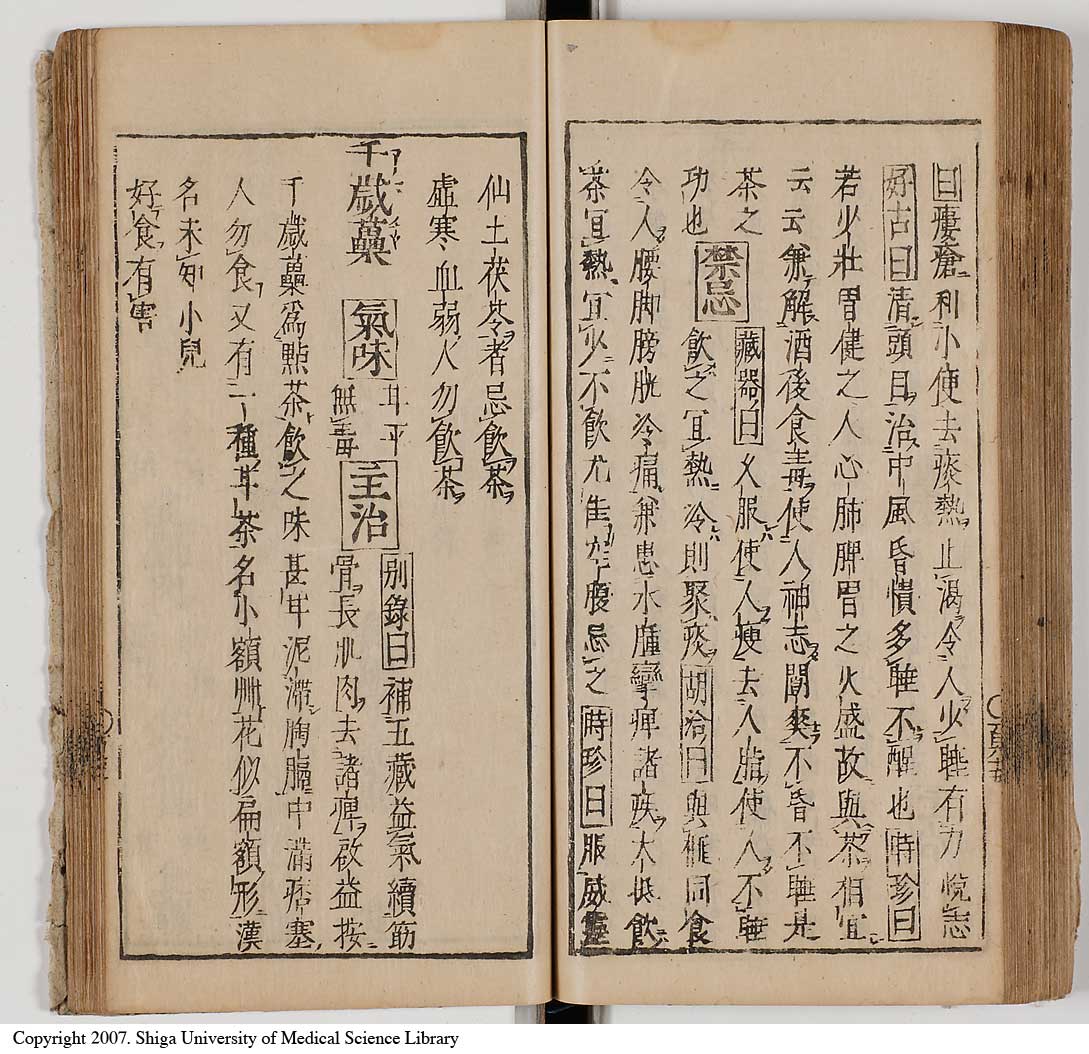 曰瘻瘡利小便去痰熱止渇令人少睡有力悦志
好古曰清頭目治中風昏憒多睡不醒也時珍曰
若少壮胃健之人心肺脾胃之火盛故與茶相宜
云云兼解酒後食毒使人神志闓爽不昏不睡是
茶之功也
禁忌
藏器曰久服使人痩去人脂使人不睡
飲之宜熱冷則聚痰胡洽曰與榧同食
令人腰脚膀胱冷痛兼患水腫攣痺諸疾大抵飲
茶宜熱宜少不飲尤佳空腹忌之時珍曰服威靈
仙土茯苓者忌飲茶
虚寒血弱人勿飲茶
千歳虆
氣味
甘平
無毒
主治
別録曰補五藏益氣續筋
骨長肌肉去諸痺啟益按
千歳虆爲點茶飲之味甚甘泥滞胸膈中滿痞塞
人勿食又有一種甘茶名小額艸花似扁額形漢
名未知小兒
好食有害
Copyright 2007. Shiga University of Medical Science Library